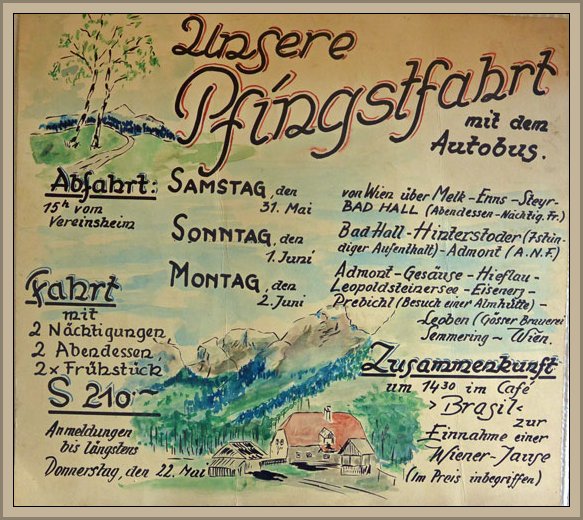 Unsere
Pfingstfahrt
mit dem
Autobus.
Abfahrt:
15h vom
Vereinsheim
SAMSTAG, den
31. Mai
von Wien über Melk-Enns-Steyr-
BAD HALL (Abendessen-Nächtig. Fr.)
SONNTAG, den
1. Juni
Bad Hall-Hinterstoder (7stün-
diger Aufenthalt)-Admont (A.N.F.)
MONTAG, den
2. Juni
Admont-Gesäuse-Hieflau-
Leopoldsteinersee-Eisenerz-
Prebichl (Besuch einer Almhütte)-
Leoben (Gösser Brauerei
Semmering~Wien.
Fahrt
mit
2 Nächtigungen
2 Abendessen
2x Frühstück
S 210.~
Anmeldungen
bis längstens
Donnerstag, den 22. Mai
Zusammenkunft
um 1430 im Café
>Brasil<
zur
Einnahme einer
Wiener-Jause
(Im Preis inbegriffen)